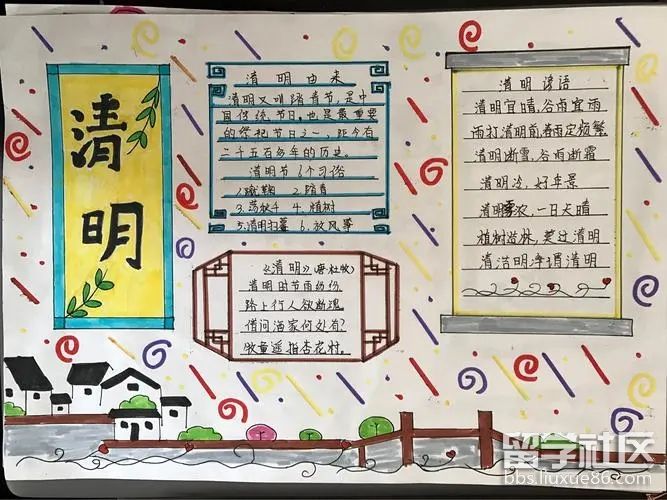 清明
清明由来
清明又叫踏青节,是中
国传统节日,也是最重要
的祭祀节日之一,距今有
二千五百多年的历史。
清明节6个习俗
1.蹴鞠 2.踏青
3.荡秋千 4.植树
5.清明扫墓 6.放风筝
《清明》(唐·杜牧)
清明时节雨纷纷
路上行人欲断魂
借问酒家何处有?
牧童遥指杏花村。
清明谚语
清明宜晴,谷雨宜雨
雨打清明前,春雨定频繁
清明断雪,谷雨断霜
清明冷,好年景
清明雾浓,一日天晴
植树造林,莫过清明
清洁明净谓清明
留学社区
bbs.liuxue86.com